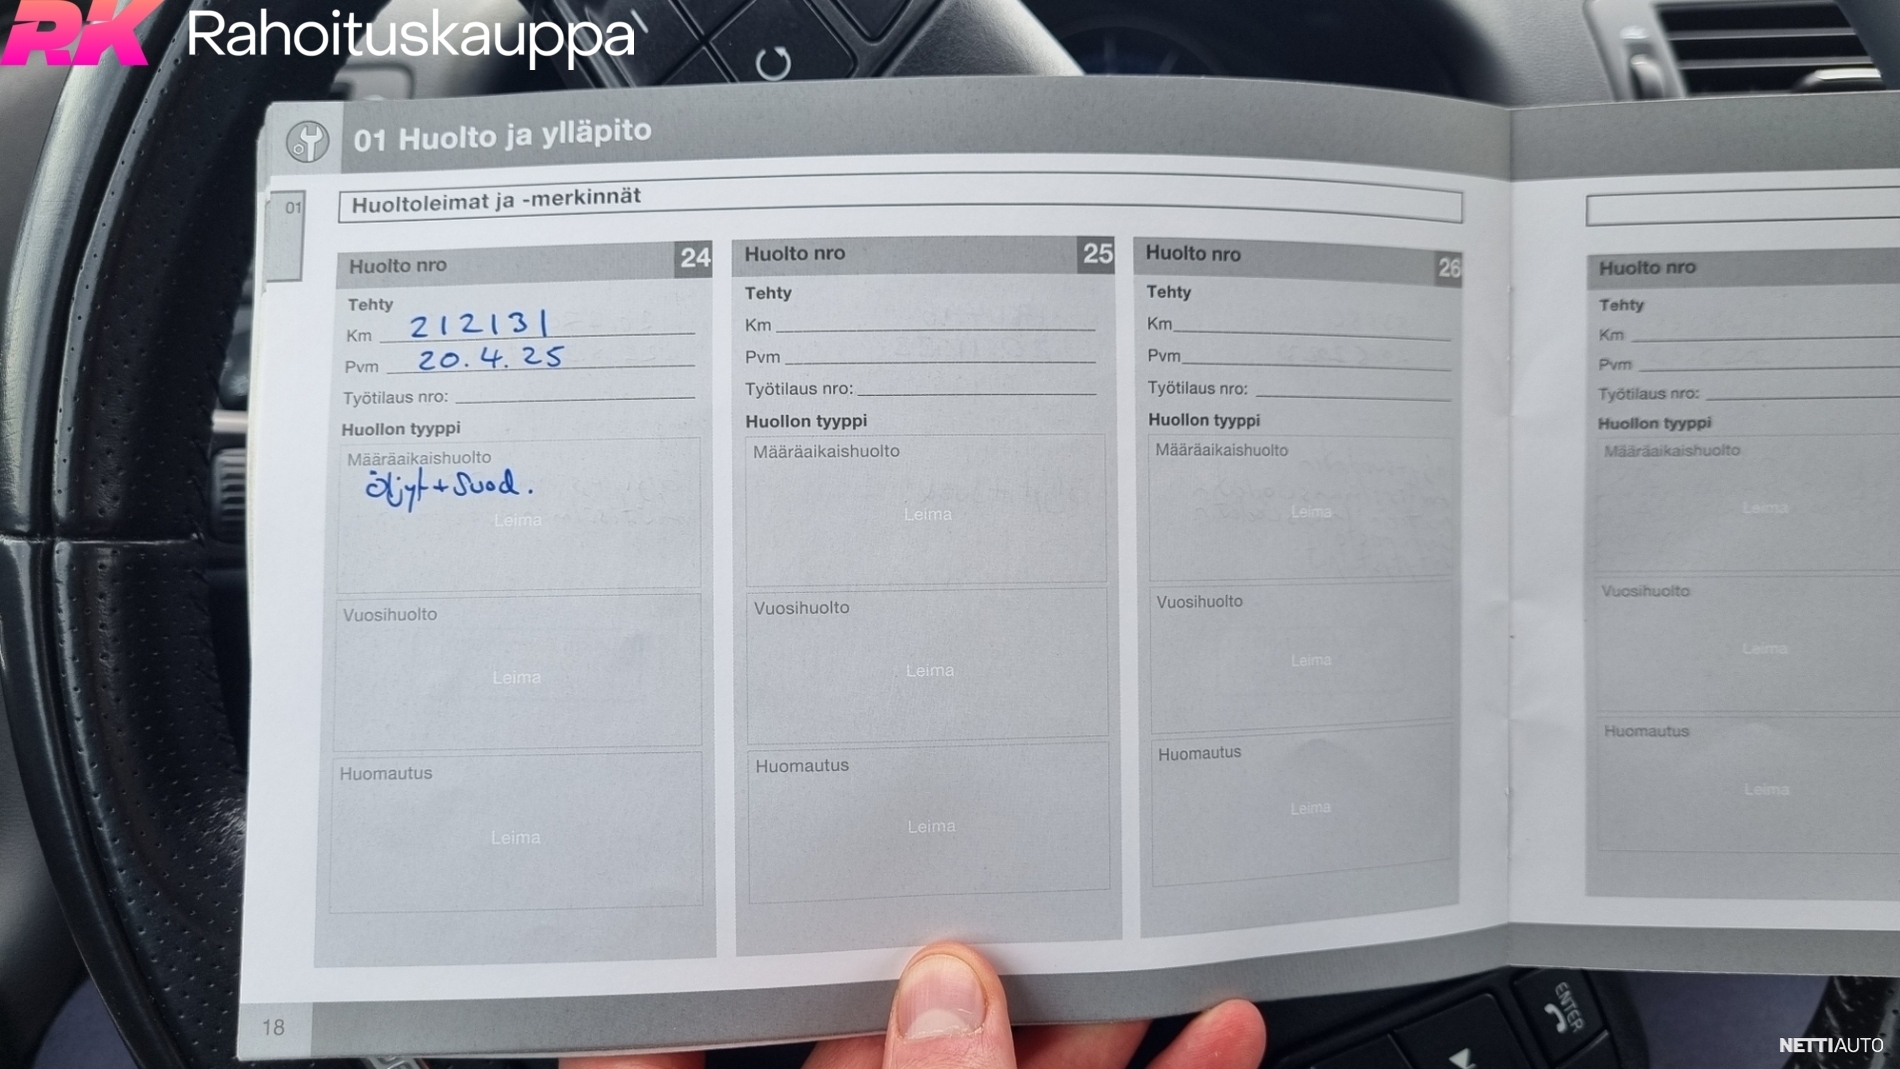 RK Rahoituskauppa
01 Huolto ja ylläpito
01
Huoltoleimat ja -merkinnät
Huolto nro 24
Tehty
Km 212131
Pvm 20.4.25
Työtilaus nro:
Huollon tyyppi
Määräaikaishuolto
Öljyt + Suod.
Leima
Vuosihuolto
Leima
Huomautus
Leima
Huolto nro 25
Tehty
Km
Pvm
Työtilaus nro:
Huollon tyyppi
Määräaikaishuolto
Leima
Vuosihuolto
Leima
Huomautus
Leima
Huolto nro 26
Tehty
Km
Pvm
Työtilaus nro:
Huollon tyyppi
Määräaikaishuolto
Leima
Vuosihuolto
Leima
Huomautus
Leima
Huolto nro
Tehty
Km
Pvm
Työtilaus nro:
Huollon tyyppi
Määräaikaishuolto
Leima
Vuosihuolto
Leima
Huomautus
Leima
18
ENTER
NETTIAUTO